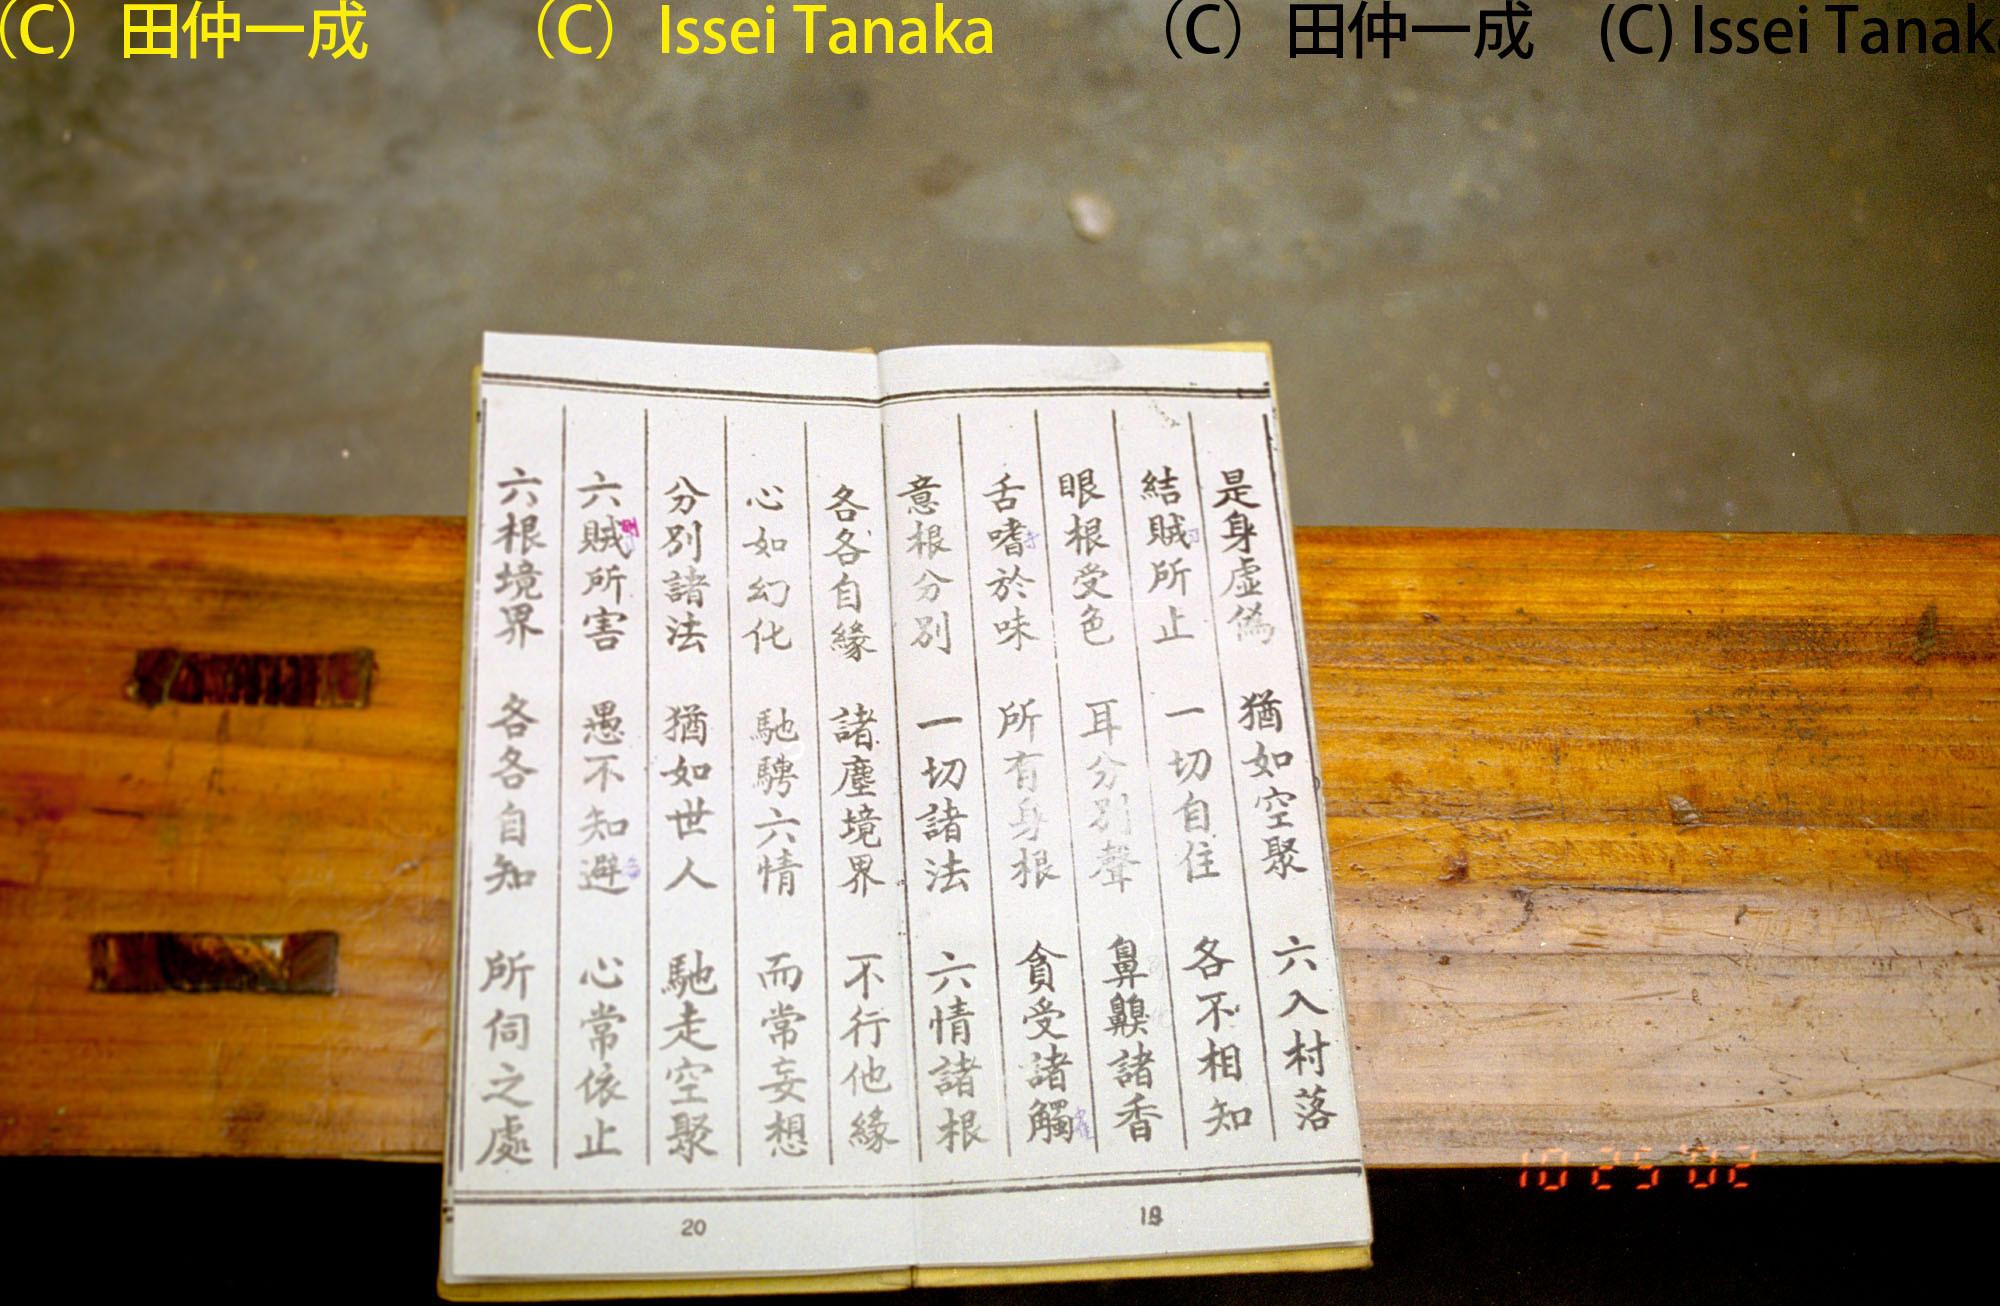 (C) 田仲一成 (C) Issei Tanaka (C) 田仲一成 (C) Issei Tanaka
是身虛偽 猶如空聚 六入村落
結賊所止 一切自住 各不相知
眼根受色 耳分別聲 鼻齅諸香
舌嗜於味 所有身根 貪受諸觸
意根分別 一切諸法 六情諸根
各各自緣 諸塵境界 不行他緣
心如幻化 馳騁六情 而常妄想
分別諸法 猶如世人 馳走空聚
六賊所害 愚不知避 心常依止
六根境界 各各自知 所伺之處
20
10 25 '02